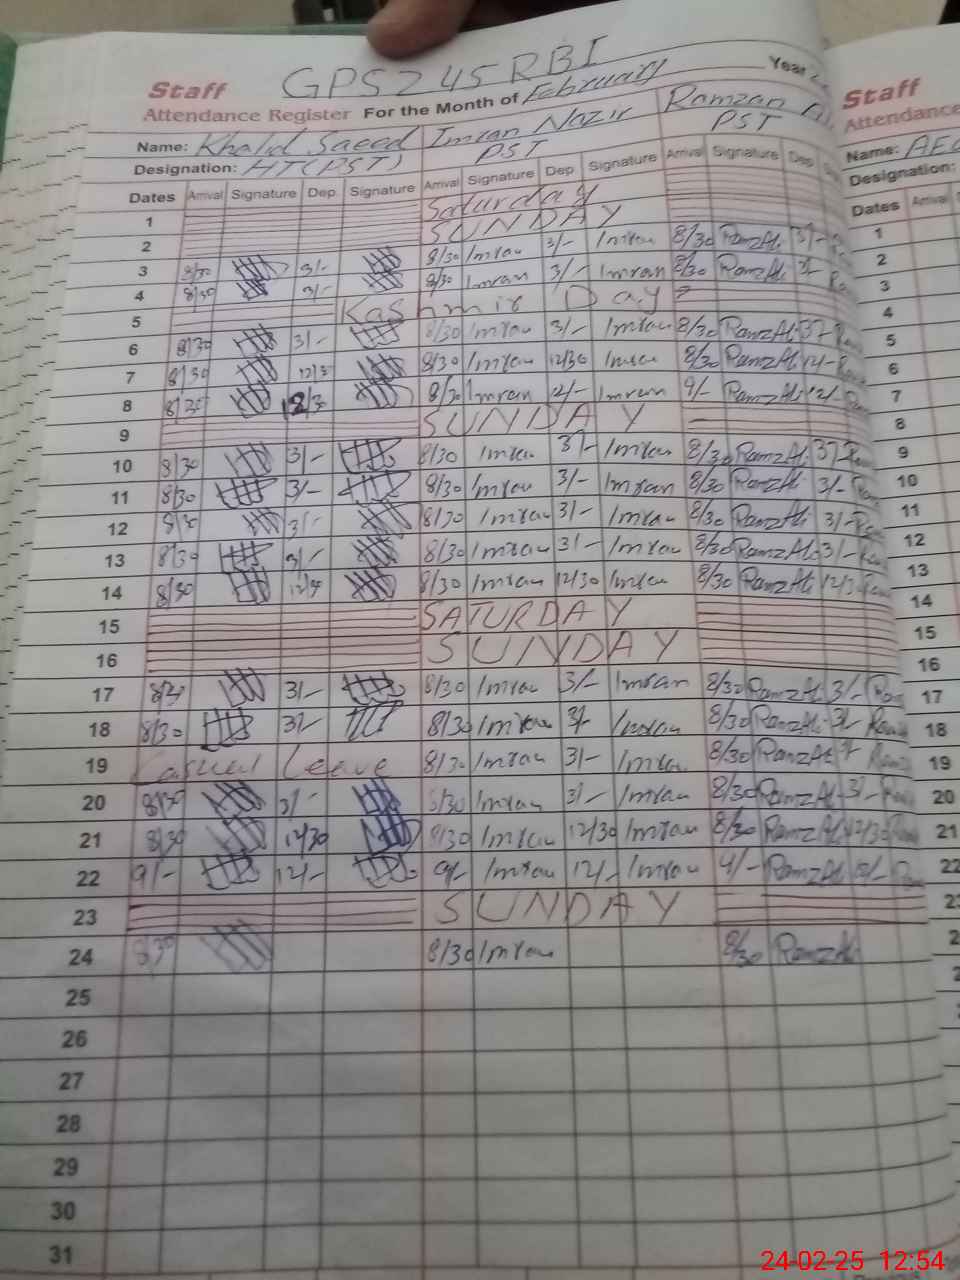 GPS 245 RBI
Staff
Attendance Register For the Month of February Year
Name: Khalid Saeed Imran Nazir Ramzan
Designation: HT (PST) PST PST
Dates Arrival Signature Dep. Signature Arrival Signature Dep Signature Arrival Signature Dep
1 Saturday
2 SUNDAY
3 8/30 3/- 8/30 Imran 3/- Imran 8/30 RamzAli 3/-
4 8/30 3/- 8/30 Imran 3/- Imran 8/30 RamzAli 3/-
5 Kashmir Day
6 8/30 3/- 8/30 Imran 3/- Imran 8/30 RamzAli 3/-
7 8/30 12/3 8/30 Imran 12/30 Imran 8/30 RamzAli 12/-
8 8/30 8/30 Imran 12/- Imran 9/- RamzAli 12/-
9 SUNDAY
10 8/30 3/- 8/30 Imran 3/- Imran 8/30 RamzAli 3/-
11 8/30 3/- 8/30 Imran 3/- Imran 8/30 RamzAli 3/-
12 8/30 3/- 8/30 Imran 3/- Imran 8/30 RamzAli 3/-
13 8/30 3/- 8/30 Imran 3/- Imran 8/30 RamzAli 3/-
14 8/30 8/30 Imran 12/30 Imran 8/30 RamzAli 12/3
15 SATURDAY
16 SUNDAY
17 8/30 3/- 8/30 Imran 3/- Imran 8/30 RamzAli 3/-
18 8/30 3/- 8/30 Imran 3/- Imran 8/30 RamzAli 3/-
19 Casual Leave 8/30 Imran 3/- Imran 8/30 RamzAli
20 8/30 3/- 8/30 Imran 3/- Imran 8/30 RamzAli 3/-
21 8/30 12/30 8/30 Imran 12/30 Imran 8/30 RamzAli 12/30
22 9/- 12/- 9/- Imran 12/- Imran 9/- RamzAli 12/-
23 SUNDAY
24 8/30 8/30 Imran 8/30 RamzAli
25
26
27
28
29
30
31
Staff
Attendance
Name:
Designation:
Dates Arrival
1
2
3
4
5
6
7
8
9
10
11
12
13
14
15
16
17
18
19
20
21
22
24-02-25 12:54